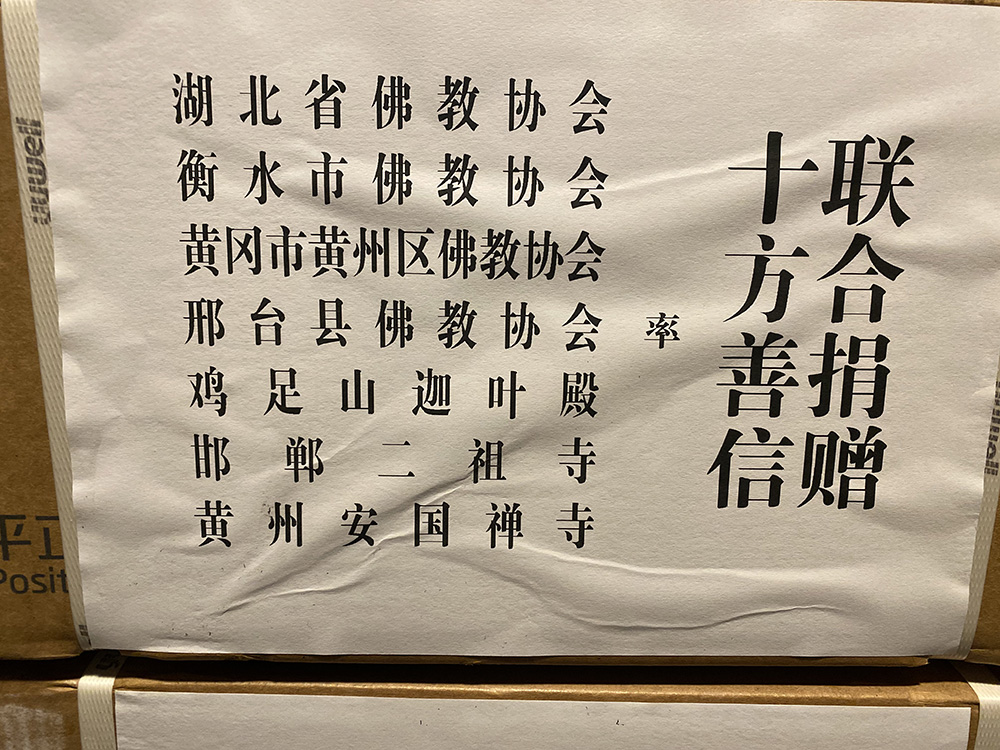 湖北省佛教协会
衡水市佛教协会
黄冈市黄州区佛教协会
邢台县佛教协会
鸡足山迦叶殿
邯郸二祖寺
黄州安国禅寺
率
十方善信
联合捐赠
yuwell
平正
Posit